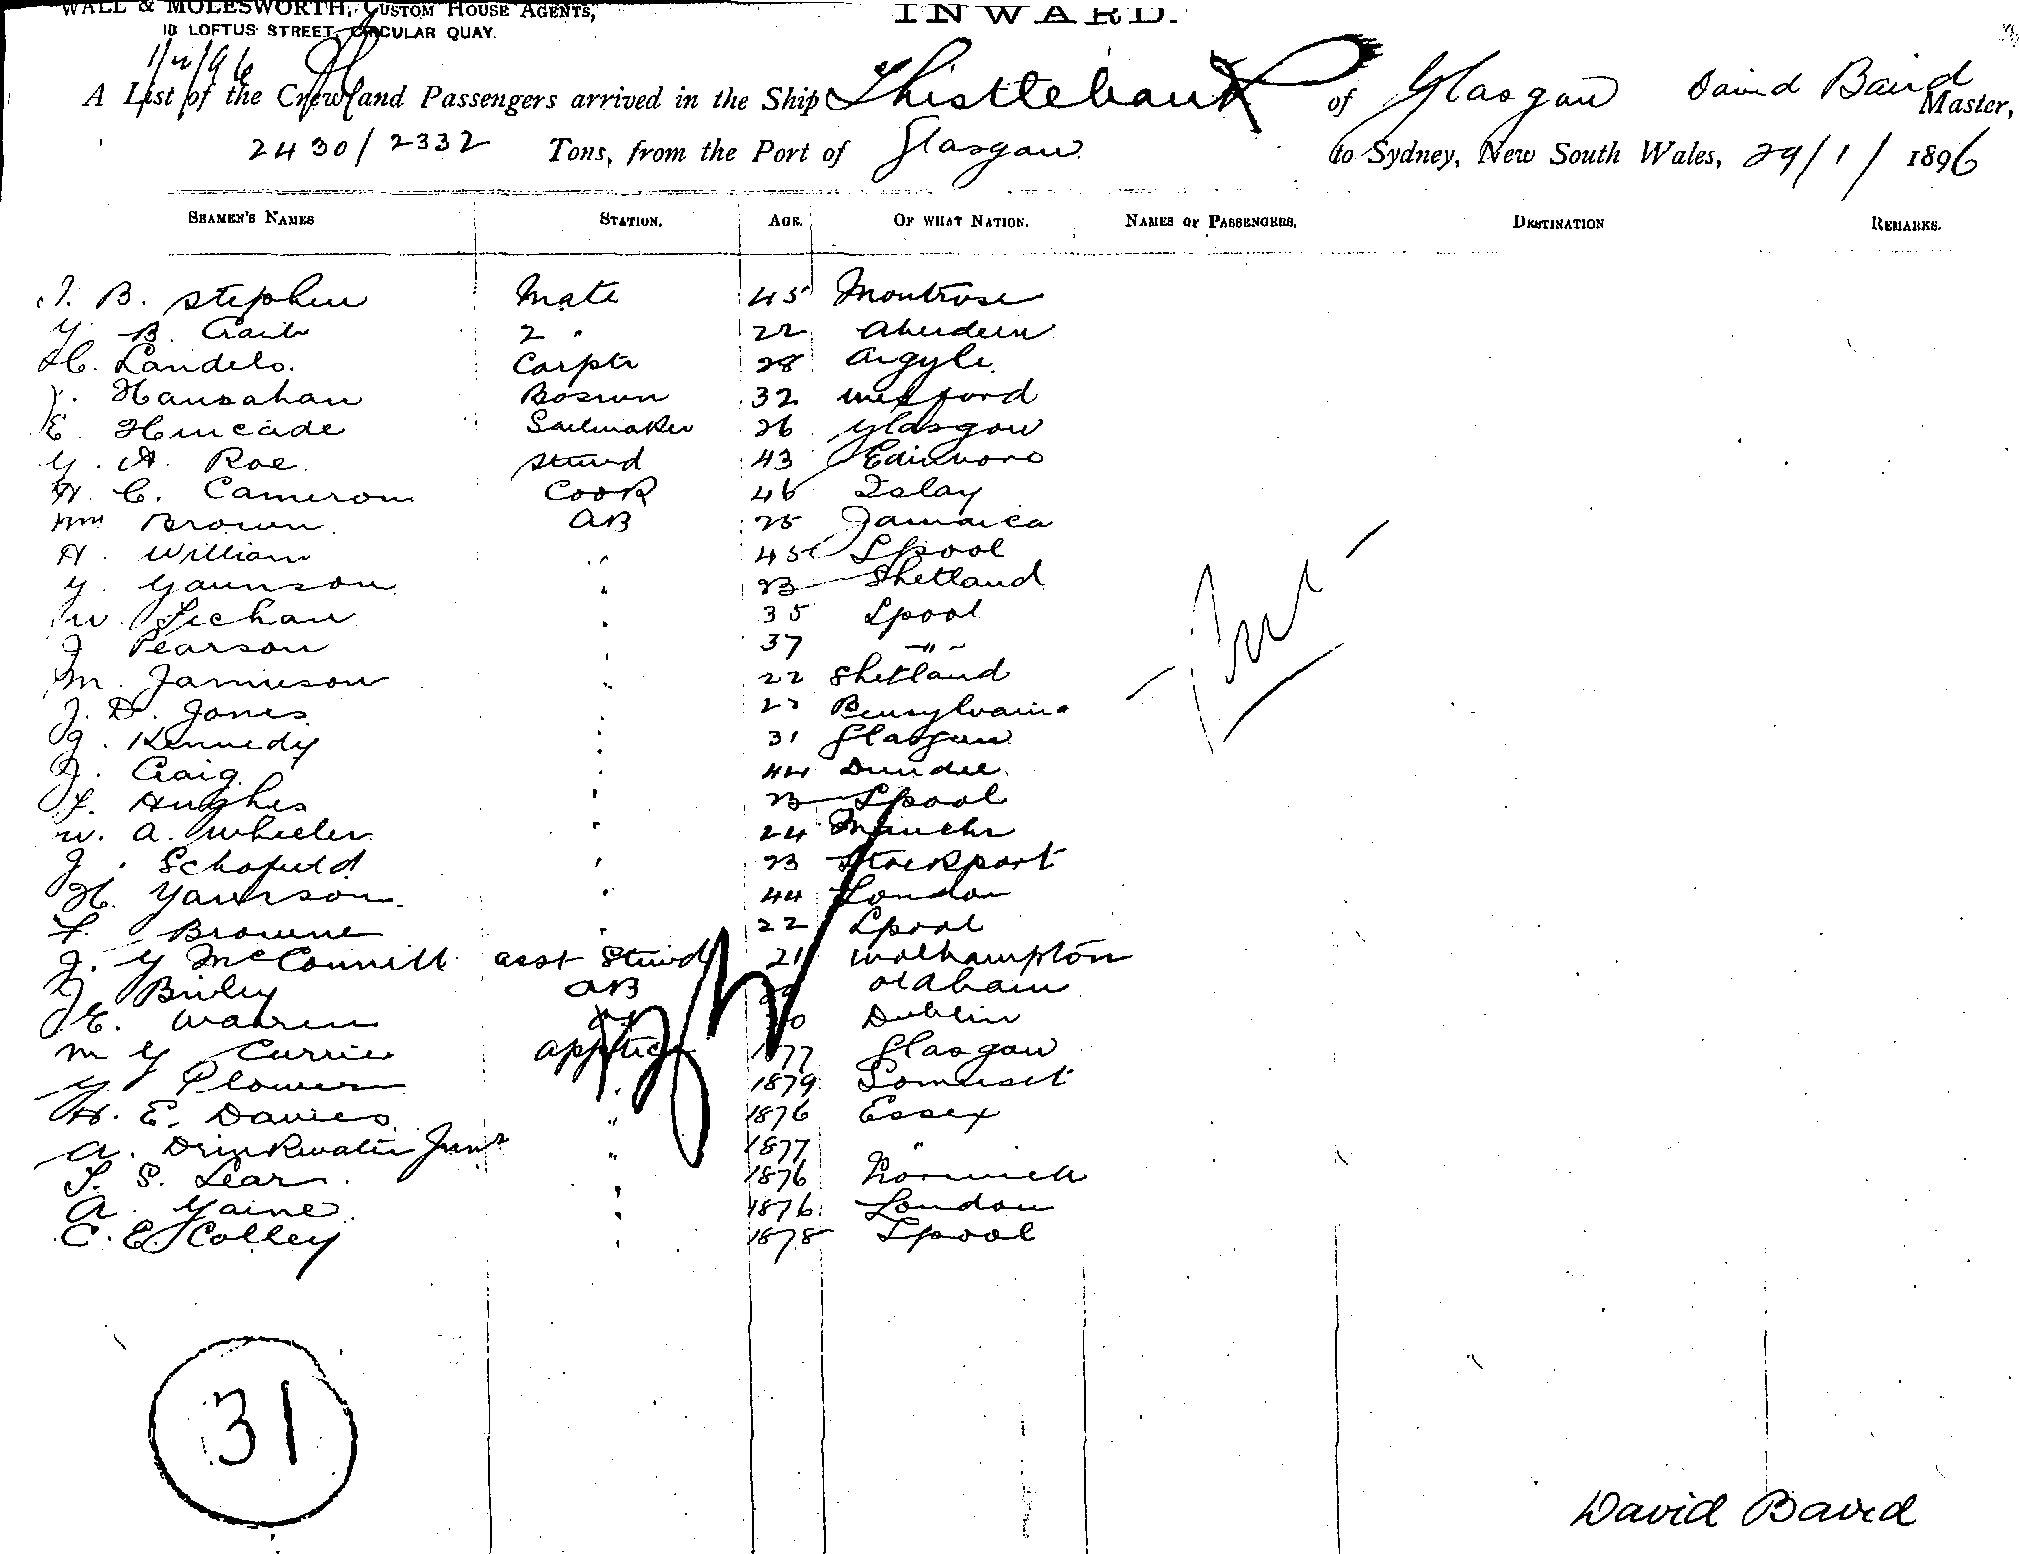 WALL & MOLESWORTH, CUSTOM HOUSE AGENTS,
10 LOFTUS STREET, CIRCULAR QUAY.
INWARD.
A List of the Crew and Passengers arrived in the Ship Thistlebank of Glasgow David Baird Master,
2430/2332 Tons, from the Port of Glasgow to Sydney, New South Wales, 29/1/1896
SEAMEN'S NAMES STATION. AGE. OF WHAT NATION. NAMES OF PASSENGERS. DESTINATION REMARKS.
B. Stephen Mate 45 Montrose
B. 2 " 22 Aberdeen
Landels. Carptr 28 Argyle
Hanrahan Boswn 32 Wexford
E. Kincade Sailmaker 26 Glasgow
G. A. Roe Stewd 43 Edinboro
C. Cameron Cook 46 Islay
Wm Brown AB 25 Jamaica
A. William " 45 Lpool
G. Gaunson " 23 Shetland
W. " 35 Lpool
J Pearson " 37 -"-
M. Jamieson " 22 Shetland
J. D. Jones " 22 Pensylvania
J. Kennedy " 31 Glasgow
J. Craig " 44 Dundee
Hughes " 23 Lpool
W. A. Wheeler " 24 Manchr
J. Schofield " 23 Stockport
H. " 44 London
Browne " 22 Lpool
J. G McConnell asst Stewd 21 Wolhampton
J Birley AB Oldham
J E. Warren Dublin
M G Currie apptice 1877 Glasgow
G Plower " 1879 Somerset
H. E. Davies " 1876 Essex
A. Drinkwater Junr " 1877 "
S. Lear. " 1876 Norwich
A. Gaine " 1876 London
C. E. Colley " 1878 Lpool
31
David Baird